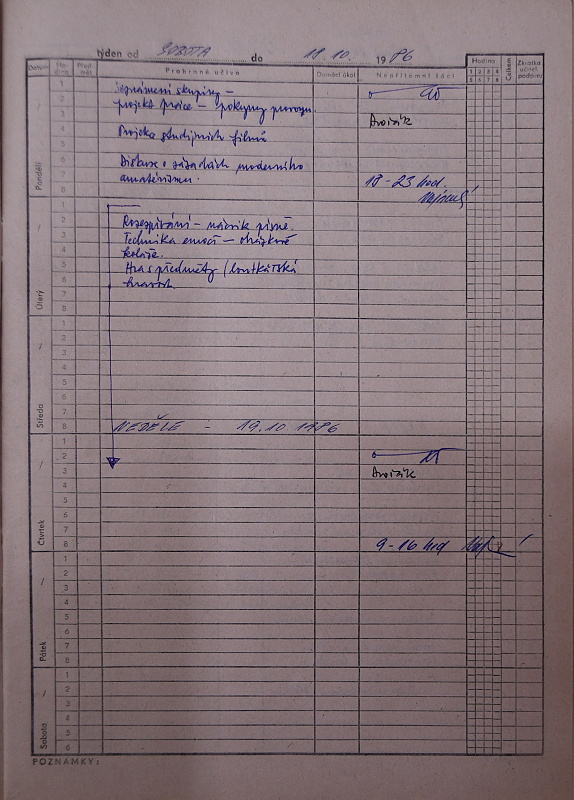 týden od SOBOTA do 18.10. 1986
Datum Ho-dina Před-mět Probrané učivo Domácí úkol Nepřítomní žáci Hodina Celkem Zkratka učitel. podpisu
1 2 3 4
5 6 7 8
Pondělí
1 2 3 4 5 6 7 8
Seznámení skupiny –
projekt práce – pokyny
Dvořák
Projekce studijních filmů
Diskuse o zásadách moderního
amatérismu.
18 - 23 hod.
Úterý
1 2 3 4 5 6 7 8
Rozezpívání – nácvik písně.
Technika emocí – obrázkové
koláže.
Hra s předměty (loutkářská
Středa
1 2 3 4 5 6 7 8
NEDĚLE - 19.10 1986
Čtvrtek
1 2 3 4 5 6 7 8
Dvořák
9 - 16 hod
Pátek
1 2 3 4 5 6 7 8
Sobota
1 2 3 4 5 6
POZNÁMKY: